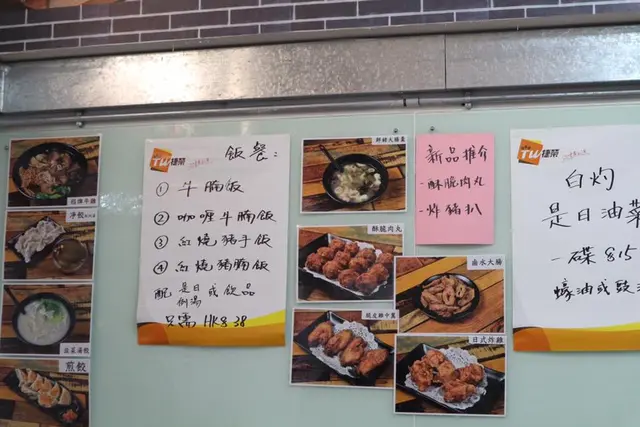 淨餃
韮菜湯餃
煎餃
TW捷榮
飯餐：
① 牛腩飯
② 咖喱牛腩飯
③ 紅燒豬手飯
④ 紅燒豬腩飯
配 是日例湯 或飲品
只需 HK$38
酥脆肉丸
脆皮雞中翼
新品推介
-酥脆肉丸
-炸豬扒
鹵水大腸
日式炸雞
TW捷榮
白灼
是日油菜
一碟 $15
蠔油或豉